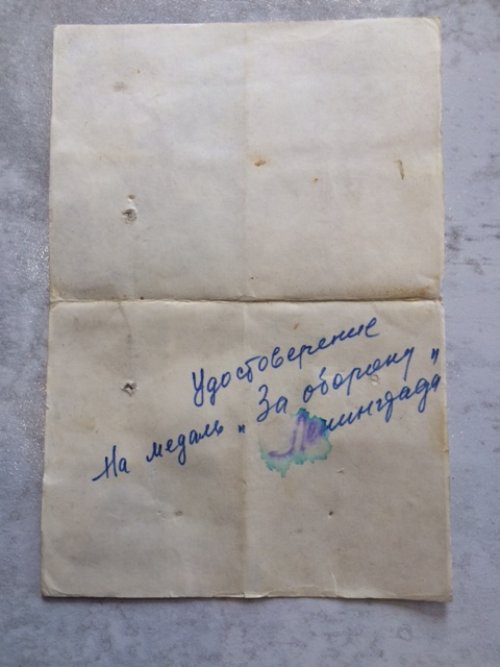 Удостоверение
На медаль „За оборону"
Ленинграда